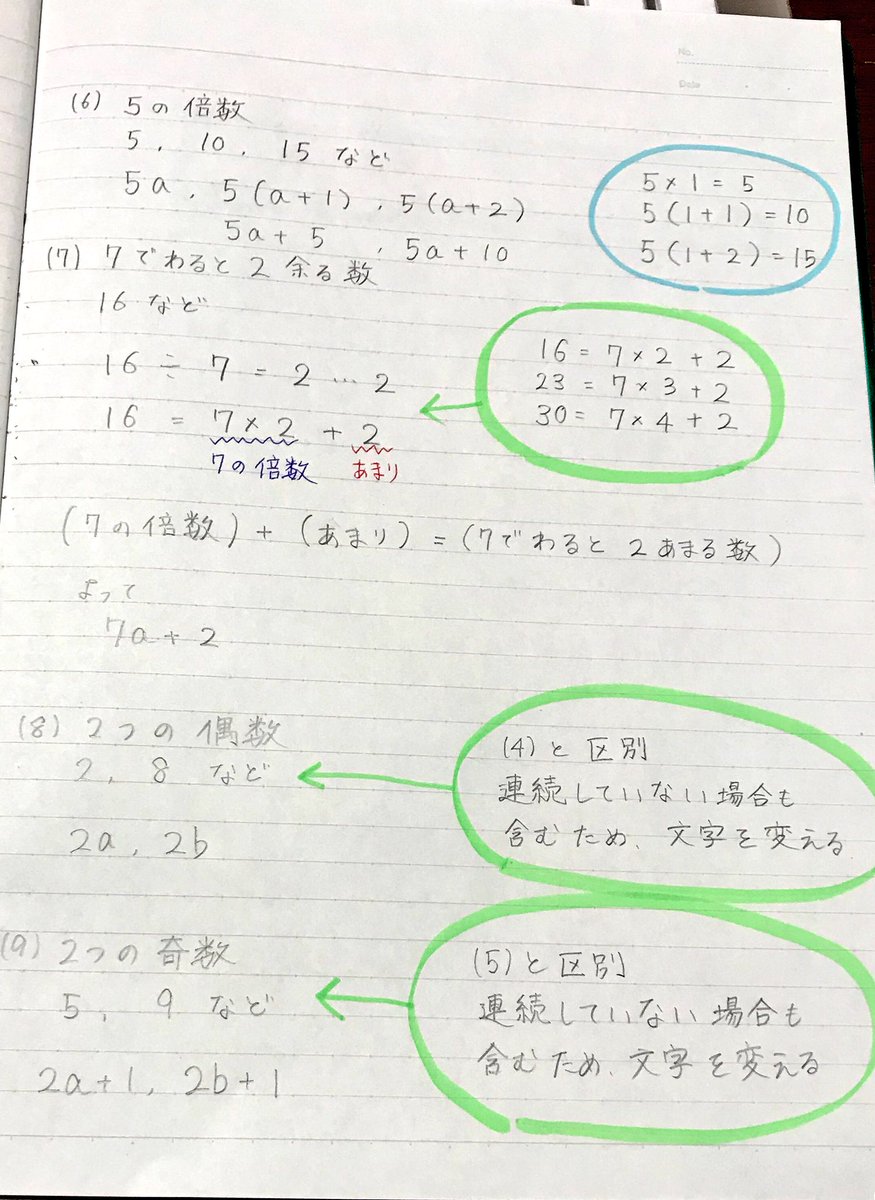 No.
Date
(6) 5の倍数
5, 10, 15 など
5a, 5(a+1), 5(a+2)
5a+5, 5a+10
5×1=5
5(1+1)=10
5(1+2)=15
(7) 7でわると2余る数
16 など
16÷7=2…2
16=7×2+2
7の倍数 あまり
16=7×2+2
23=7×3+2
30=7×4+2
(7の倍数)+(あまり)=(7でわると2あまる数)
よって
7a+2
(8) 2つの偶数
2, 8 など
2a, 2b
(4)と区別
連続していない場合も
含むため、文字を変える
(9) 2つの奇数
5, 9 など
2a+1, 2b+1
(5)と区別
連続していない場合も
含むため、文字を変える